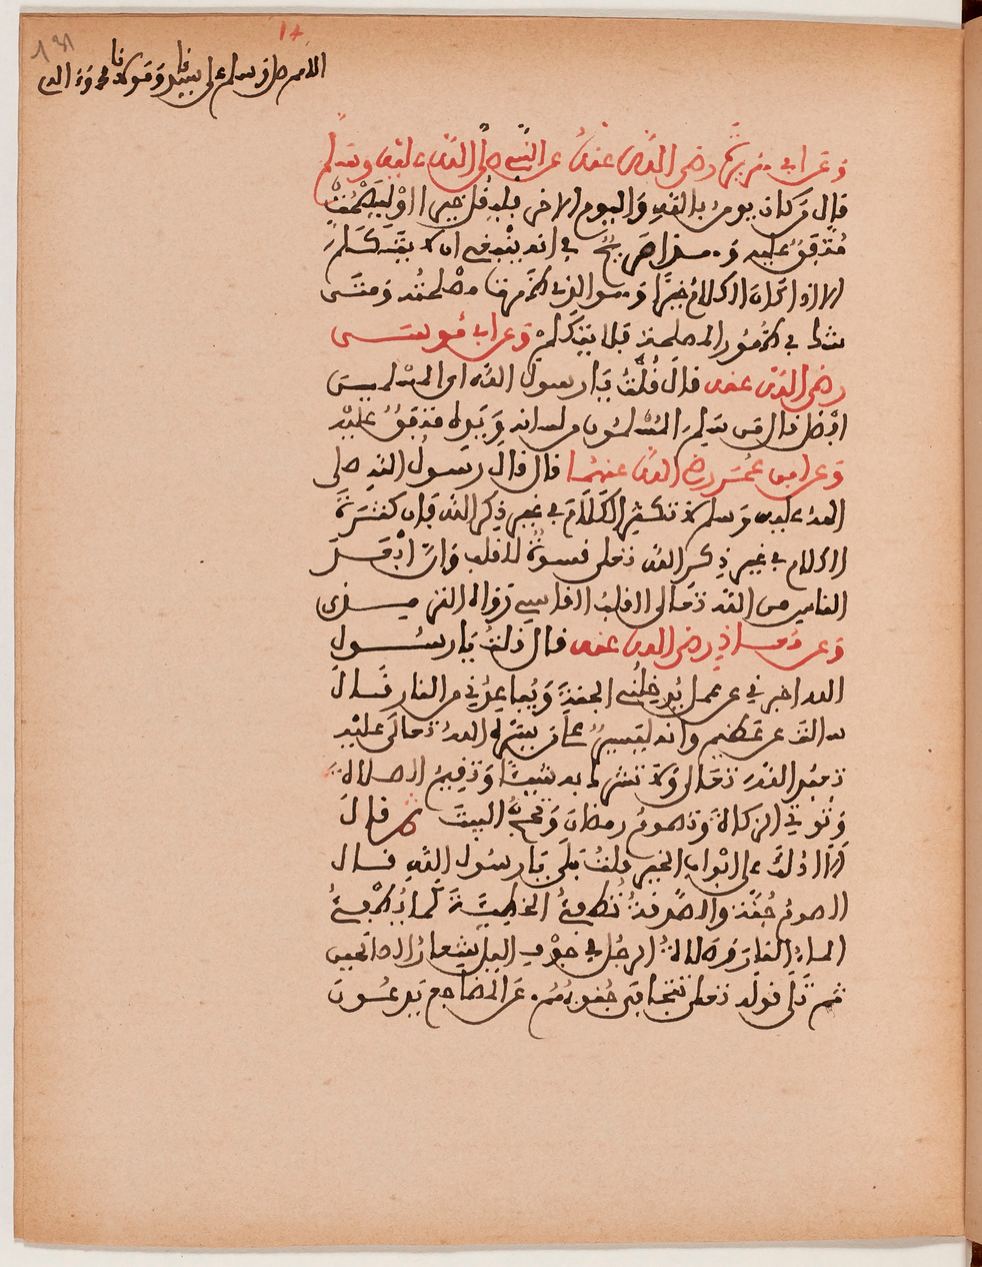 14
191
اللهم صل وسلم على سيدنا ومولانا محمد وءاله
وعن ابي هريرة رضي الله عنه عن النبي صلى الله عليه وسلم
قال من كان يومن بالله واليوم الاخر فليقل خيرا او ليصمت
متفق عليه وهذا صريح في انه ينبغي ان لا يتكلم
الا اذا كان الكلام خيرا وهو الذي ظهرت مصلحته ومتى
شك في ظهور المصلحة فلا يتكلم وعن ابي موسى
رضي الله عنه قال قلت يا رسول الله اي المسلمين
افضل قال من سلم المسلمون من لسانه ويده متفق عليه
وعن ابن عمر رضي الله عنهما قال قال رسول الله صلى
الله عليه وسلم لا تكثر الكلام في غير ذكر الله فإن كثرة
الكلام في غير ذكر الله تعلى قسوة للقلب وإن أبعد
الناس من الله تعالى القلب القاسي رواه الترميذي
وعن معاذ رضي الله عنه قال قلت يا رسول
الله اخبرني عن عمل يدخلني الجنة ويباعدني من النار قال
سالت عن عظيم وانه ليسير على من يسره الله تعالى عليه
تعبد الله تعالى ولا تشرك به شيئا وتقيم الصلاة
وتوتي الزكاة وتصوم رمضان وتحج البيت ثم قال
الا ادلك على ابواب الخير قلت بلى يا رسول الله قال
الصوم جنة والصدقة تطفئ الخطيئة كما يطفئ
الماء النار وصلاة الرجل في جوف اليل شعار الصالحين
ثم تلى قوله تعلى تتجافى جنوبهم عن المضاجع يدعون